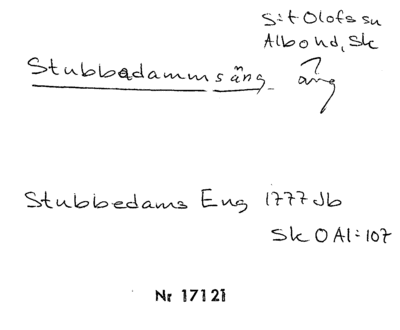 S:t Olofs sn
Albo hd, Sk
Stubbadammsäng äng
Stubbedams Eng 1777 Jb
Sk O Al:107
Nr 17121